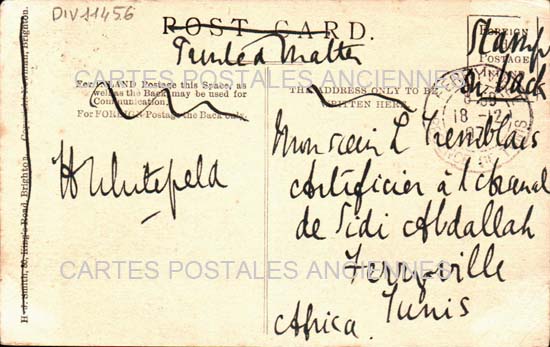 DIV11456
POST CARD.
Printed Matter
FOREIGN
POSTAGE
Stamp
on back
For INLAND Postage this Space, as
well as the Back may be used for
Communication.
For FOREIGN Postage the Back only.
THE ADDRESS ONLY TO BE
WRITTEN HERE.
18 - 12
H Whitefield
Monsieur L Tremblais
Artificier à l'Arsenal
de Sidi Abdallah
Ferryville
Tunis
Africa.
CARTES POSTALES ANCIENNES
CARTES POSTALES ANCIENNES
H. J. Smith, 80, King's Road, Brighton.